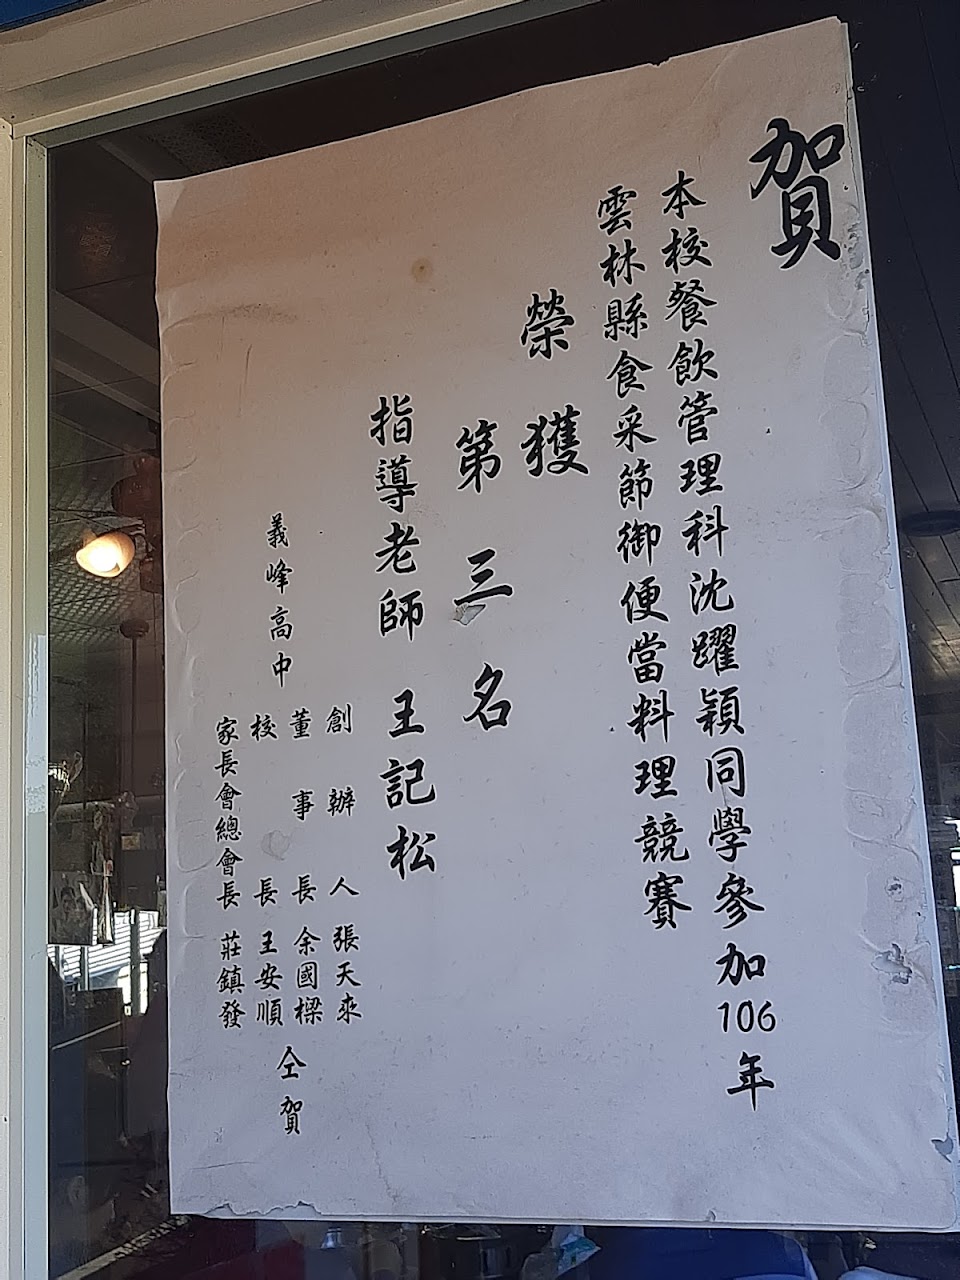 賀
本校餐飲管理科沈躍穎同學參加106年
雲林縣食采節御便當料理競賽
榮獲
第三名
指導老師 王記松
義峰高中
創辦人 張天來
董事長 余國樑
校長 王安順
家長會總會長 莊鎮發
仝賀